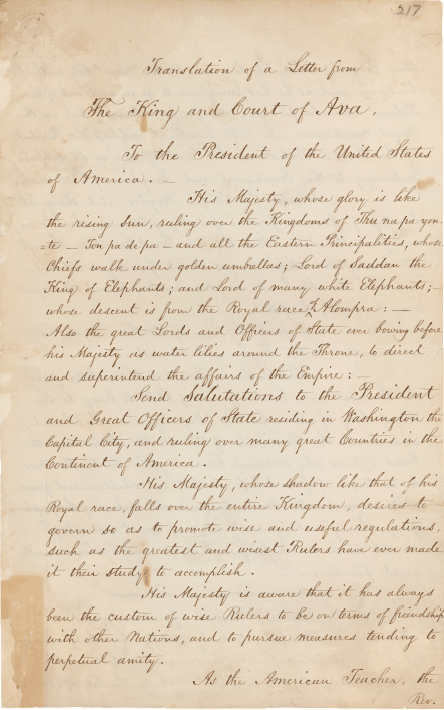 217
Translation of a Letter from
The King and Court of Ava.
To the President of the United States
of America. —
His Majesty, whose glory is like
the rising Sun, ruling over the Kingdoms of Thu na pa yon
=te — Ton pa de pa — and all the Eastern Principalities, whose
Chiefs walk under golden umbrellas; Lord of Saddan the
King of Elephants; and Lord of many white Elephants; —
whose descent is from the Royal race of Alompra: —
Also the great Lords and Officers of State ever bowing before
his Majesty as water lilies around the Throne, to direct
and superintend the affairs of the Empire: —
Send Salutations to the President
and Great Officers of State residing in Washington the
Capital City, and ruling over many great Countries in the
Continent of America.
His Majesty, whose shadow like that of his
Royal race, falls over the entire Kingdom, desires to
govern so as to promote wise and useful regulations,
such as the greatest and wisest Rulers have ever made
it their study to accomplish.
His Majesty is aware that it has always
been the custom of wise Rulers to be on terms of friendship
with other Nations, and to pursue measures tending to
perpetual amity.
As the American Teacher, the
Rev.